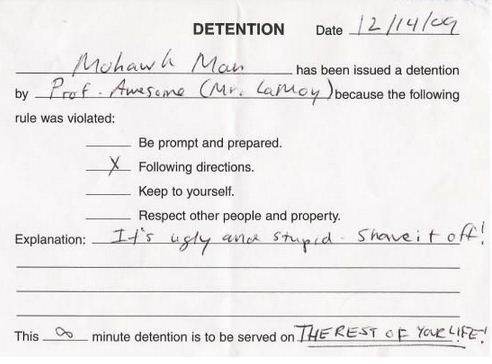 DETENTION Date 12/14/09
Mohawk Man has been issued a detention
by Prof. Awesome (Mr. LaMoy) because the following
rule was violated:
Be prompt and prepared.
X Following directions.
Keep to yourself.
Respect other people and property.
Explanation: It's ugly and stupid. Shave it off!
This ∞ minute detention is to be served on THE REST OF YOUR LIFE!